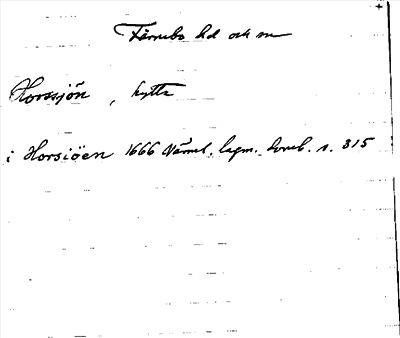 Färnebo hd och sn
Horssjön, hytta
i Horsiöen 1666 Värml. lagm. domb. s. 315